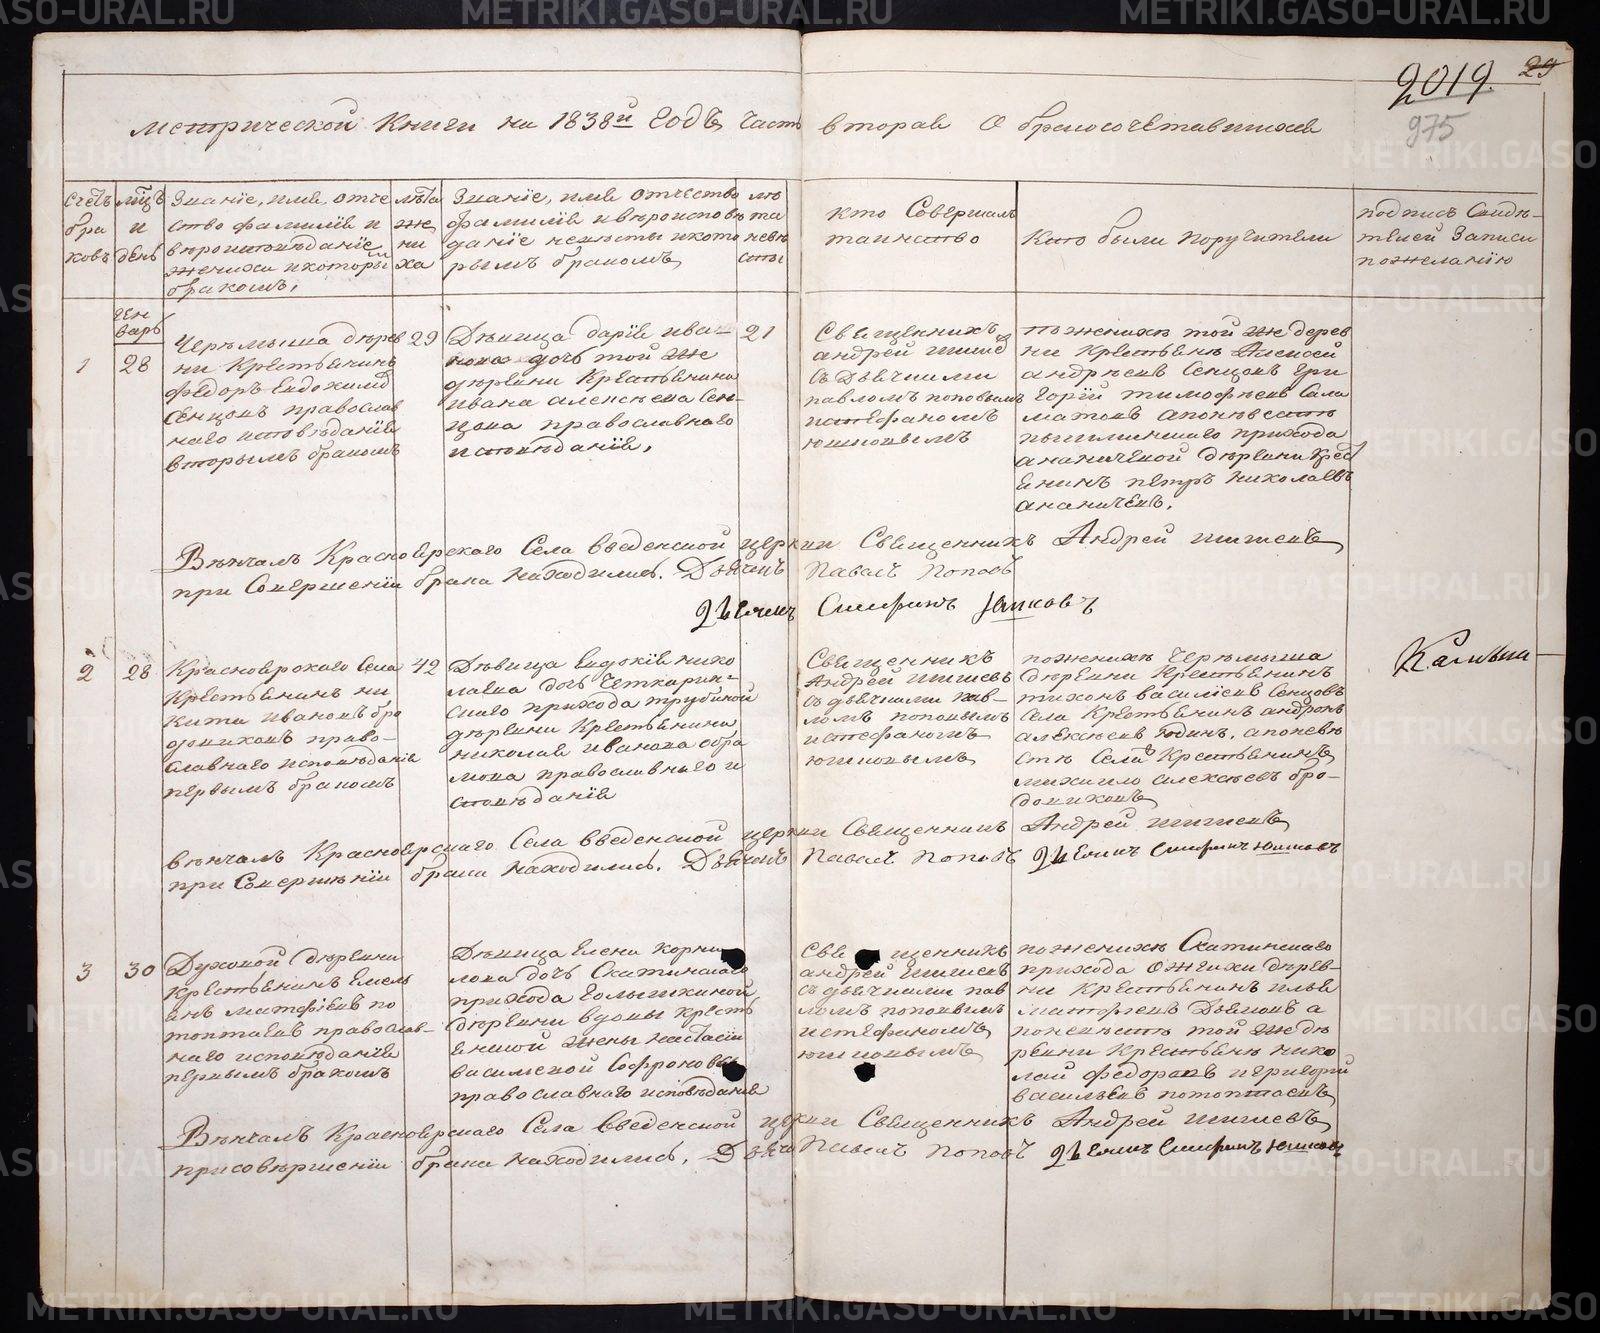 2019. 29
975
метрической Книги на 1838й годъ часть вторая О бракосочетавшихся
Счетъ бра ковъ
мцъ и день
Званїе, имя, отче
ство фамилїя и
вѣроисповѣданїе
жениха и которы
бракомъ,
лѣта же ни ха
Званїе, имя отчество
фамилїя и вѣроисповѣ
данїе невѣсты и кото
рымъ бракомъ
лѣ та невѣ сты
кто Совершалъ
таинство
Кто были поручители
подпись Свидѣ-
телей Записи
по желанїю
Ген
варь
1 28
Черемыша дерев
ни Крестьянинъ
Федоръ Евдокимов
Сенцовъ православ
наго исповѣданїя
вторымъ бракомъ
29
Дѣвица дарїя ива-
нова дочь той же
деревни Крестьянина
ивана алексѣева Сен-
цова православнаго
исповѣданїя,
21
Священникъ
андрей шишев
съ Дьячками
павломъ поповымъ
истефаномъ
юшковымъ
по женихѣ той же дерев
ни Крестьяне Алексей
андрѣевъ Сенцовъ Гри
горїй тимофѣевъ Сала
матовъ апоневѣстѣ
пышминскаго прихода
ананичевой деревни Крес
янинъ петръ николаевъ
ананичевъ,
Вѣнчалъ Красноярскаго Села введенской церкви Священникъ Андрей шишевъ
при Совершенїи брака находились. Дьячекъ Павелъ Поповъ
Дьячекъ Стефанъ Юшковъ
2 28
Красноярскаго Села
Крестьянинъ ни
кита ивановъ бро
довиковъ право-
славнаго исповѣданїя
первымъ бракомъ
42
Дѣвица Евдокїя нико
лаева дочь Четкарин-
скаго прихода трубиной
деревни Крестьянина
николая иванова абра
мова православнаго и
споведанїя
Священникъ
Андрей шишевъ
съ дьячками пав-
ломъ поповымъ
истефаномъ
юшковымъ
по женихѣ Черемыша
деревни Крестьянинъ
тихонъ василїевъ Сенцовъ
Села Крестьянинъ андронъ
алексѣевъ Юдинъ, апоневѣ
стѣ Села Крестьянинъ
михаило алексѣевъ бро-
довиковъ
вѣнчалъ Красноярскаго Села введенской церкви Священникъ Андрей шишевъ
при Совершенїи брака находились. Дьячекъ Павелъ Поповъ Дьячекъ Стефанъ Юшковъ
3 30
Духовой деревни
Крестьянинъ Емель
янъ матфїевъ по
топтаевъ православ-
наго исповѣданїя
первымъ бракомъ
Дѣвица Елена корни
лова дочь Скатинскаго
прихода Голышкиной
деревни вдовы кресть
янской жены настасїи
васильевой Софроновы
православнаго исповѣданїя
Священникъ
андрей шишевъ
съ дьячками пав
ломъ поповымъ
истефаномъ
юшковымъ
по женихѣ Скатинскаго
прихода Ожгихи дерев-
ни Крестьянинъ илья
матфеевъ Дьяковъ а
поневѣстѣ той же де
ревни Крестьяне нико
лай федоровъ игригорїй
васильевъ потоптаевъ
Вѣнчалъ Красноярскаго Села введенской церкви Священникъ Андрей шишевъ
при совершенїи брака находились, Дьячо Павелъ Поповъ Дьячекъ Стефанъ Юшковъ
METRIKI.GASO-URAL.RU